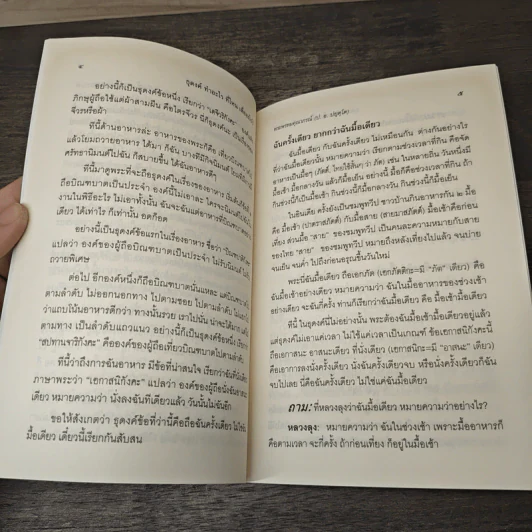 ๔
ธุดงค์ ทำอะไร ที่ไหน
อย่างนี้ก็เป็นธุดงค์ข้อหนึ่ง เรียกว่า
ภิกษุผู้ถือใช้แต่ผ้าสามผืน คือไตรจีวร นี่ก็ธุดงค์นะ เป็นเรื่อง
จีวรหรือผ้า
ทีนี้ด้านอาหารล่ะ อาหารของพระก็คือ
แล้วโยมถวายอาหาร ได้มา ก็ฉัน บางทีมีกิจนิมนต์
ศรัทธานิมนต์ไปฉัน ก็สบายขึ้น ได้ฉันอาหารดีๆ
ทีนี้มาดูพระที่จะถือธุดงค์ในเรื่องของอาหาร
ถือบิณฑบาตเป็นประจำ องค์นี้ไม่เอาละ ใครจะนิมนต์ไป
งานในพิธีอะไร ไม่เอาทั้งนั้น ฉันจะฉันแต่อาหารที่บิณฑบาต
เดียว ได้เท่าไร ก็เท่านั้น อดก็อด
อย่างนี้เป็นธุดงค์ข้อแรกในเรื่องอาหาร ชื่อว่า
แปลว่า องค์ของผู้ถือบิณฑบาตเป็นประจำ ไม่รับนิมนต์
ถวายพิเศษ
ต่อไป อีกองค์หนึ่งก็ถือบิณฑบาตนั่นแหละ แต่บิณฑบาต
ตามลำดับ ไม่ออกนอกทาง ไปตามซอย ไปตามลำดับ
ว่าแถบโน้นอาหารดีกว่า ทางนั้นรวย เราไปนั่น น่าจะได้มาก
ตามทาง เป็นลำดับแถวแนว อย่างนี้ก็เป็นธุดงค์ข้อหนึ่ง เรียกว่า
"สปทานจาริกังคะ" คือองค์ของผู้ถือเที่ยวบิณฑบาตไปตามลำดับ
ทีนี้ว่าถึงการฉันอาหาร มีข้อที่น่าสนใจ เรียกว่าฉันที่นั่งเดียว
ภาษาพระว่า "เอกาสนิกังคะ" แปลว่า องค์ของผู้ถือนั่งฉันอาสนะ
เดียว หมายความว่า นั่งลงฉันทีเดียวแล้ว วันนั้นไม่ฉันอีก
ขอให้สังเกตว่า ธุดงค์ข้อที่ว่านี้คือถือฉันครั้งเดียว ไม่ใช่ฉัน
มื้อเดียว เดี๋ยวนี้เรียกกันสับสน
๕
ฉันครั้งเดียว ยากกว่าฉันมื้อเดียว
ฉันมื้อเดียว กับฉันครั้งเดียว ไม่เหมือนกัน ต่างกันอย่างไร
ที่ว่าฉันมื้อเดียวนั้น หมายความว่า เรียกตามช่วงเวลาที่กิน จัด
อาหารเป็นมื้อๆ (ภัตต์, ไทยใช้สั้นๆ ว่า ภัต) เช่น ในหลายถิ่น วันหนึ่งมี
มื้อเช้า มื้อกลางวัน แล้วก็มื้อเย็น อย่างนี้ มื้อก็คือช่วงเวลาที่กิน ถ้า
กินช่วงเช้านี้ก็มื้อเช้า กินช่วงนี้ก็มื้อกลางวัน กินช่วงนี้ก็มื้อเย็น
ในอินเดีย ครั้งยังเป็นชมพูทวีป ชาวบ้านกินอาหารกัน ๒ มื้อ
คือ มื้อเช้า (ปาตราสภัตต์) กับมื้อสาย (สายมาสภัตต์) มื้อเช้าคือก่อน
เที่ยง ส่วนมื้อ "สาย" ของชมพูทวีป เป็นคนละความหมายกับสาย
ของไทย "สาย" ของชมพูทวีป หมายถึงหลังเที่ยงไปแล้ว จนบ่าย
จนเย็น จนค่ำ ไปถึงก่อนอรุณขึ้นวันใหม่
พระนี่ฉันมื้อเดียว ถือเอกภัต (เอกภัตติกะ=มี "ภัต" เดียว) คือ
ฉันมื้อเช้าอย่างเดียว หมายความว่า ฉันในมื้ออาหารของช่วงเช้า
อย่างเดียว จะฉันกี่ครั้ง ท่านก็เรียกว่าฉันมื้อเดียว คือ มื้อเช้ามื้อเดียว
ทีนี้ ในธุดงค์นี้ไม่อย่างนั้น พระต้องฉันมื้อเดียวอยู่แล้ว
แต่ธุดงค์ไม่เอาแค่เวลา ไม่ใช้แค่เวลาเป็นเกณฑ์ ข้อเอกาสนิกังคะนี้
ถือเอกาสนะ อาสนะเดียว ที่นั่งเดียว (เอกาสนิกะ=มี "อาสนะ" เดียว)
คือเอาการลงนั่งครั้งเดียว นั่งฉันครั้งเดียวจบ หรือนั่งครั้งเดียวก็ฉัน
จบไปเลย นี่คือฉันครั้งเดียว ไม่ใช่แค่ฉันมื้อเดียว
ถาม: ที่หลวงลุงว่าฉันมื้อเดียว หมายความว่าอย่างไร?
หลวงลุง: หมายความว่า ฉันในช่วงเช้า เพราะมื้ออาหารก็
คือตามเวลา จะกี่ครั้ง ถ้าก่อนเที่ยง ก็อยู่ในมื้อเช้า